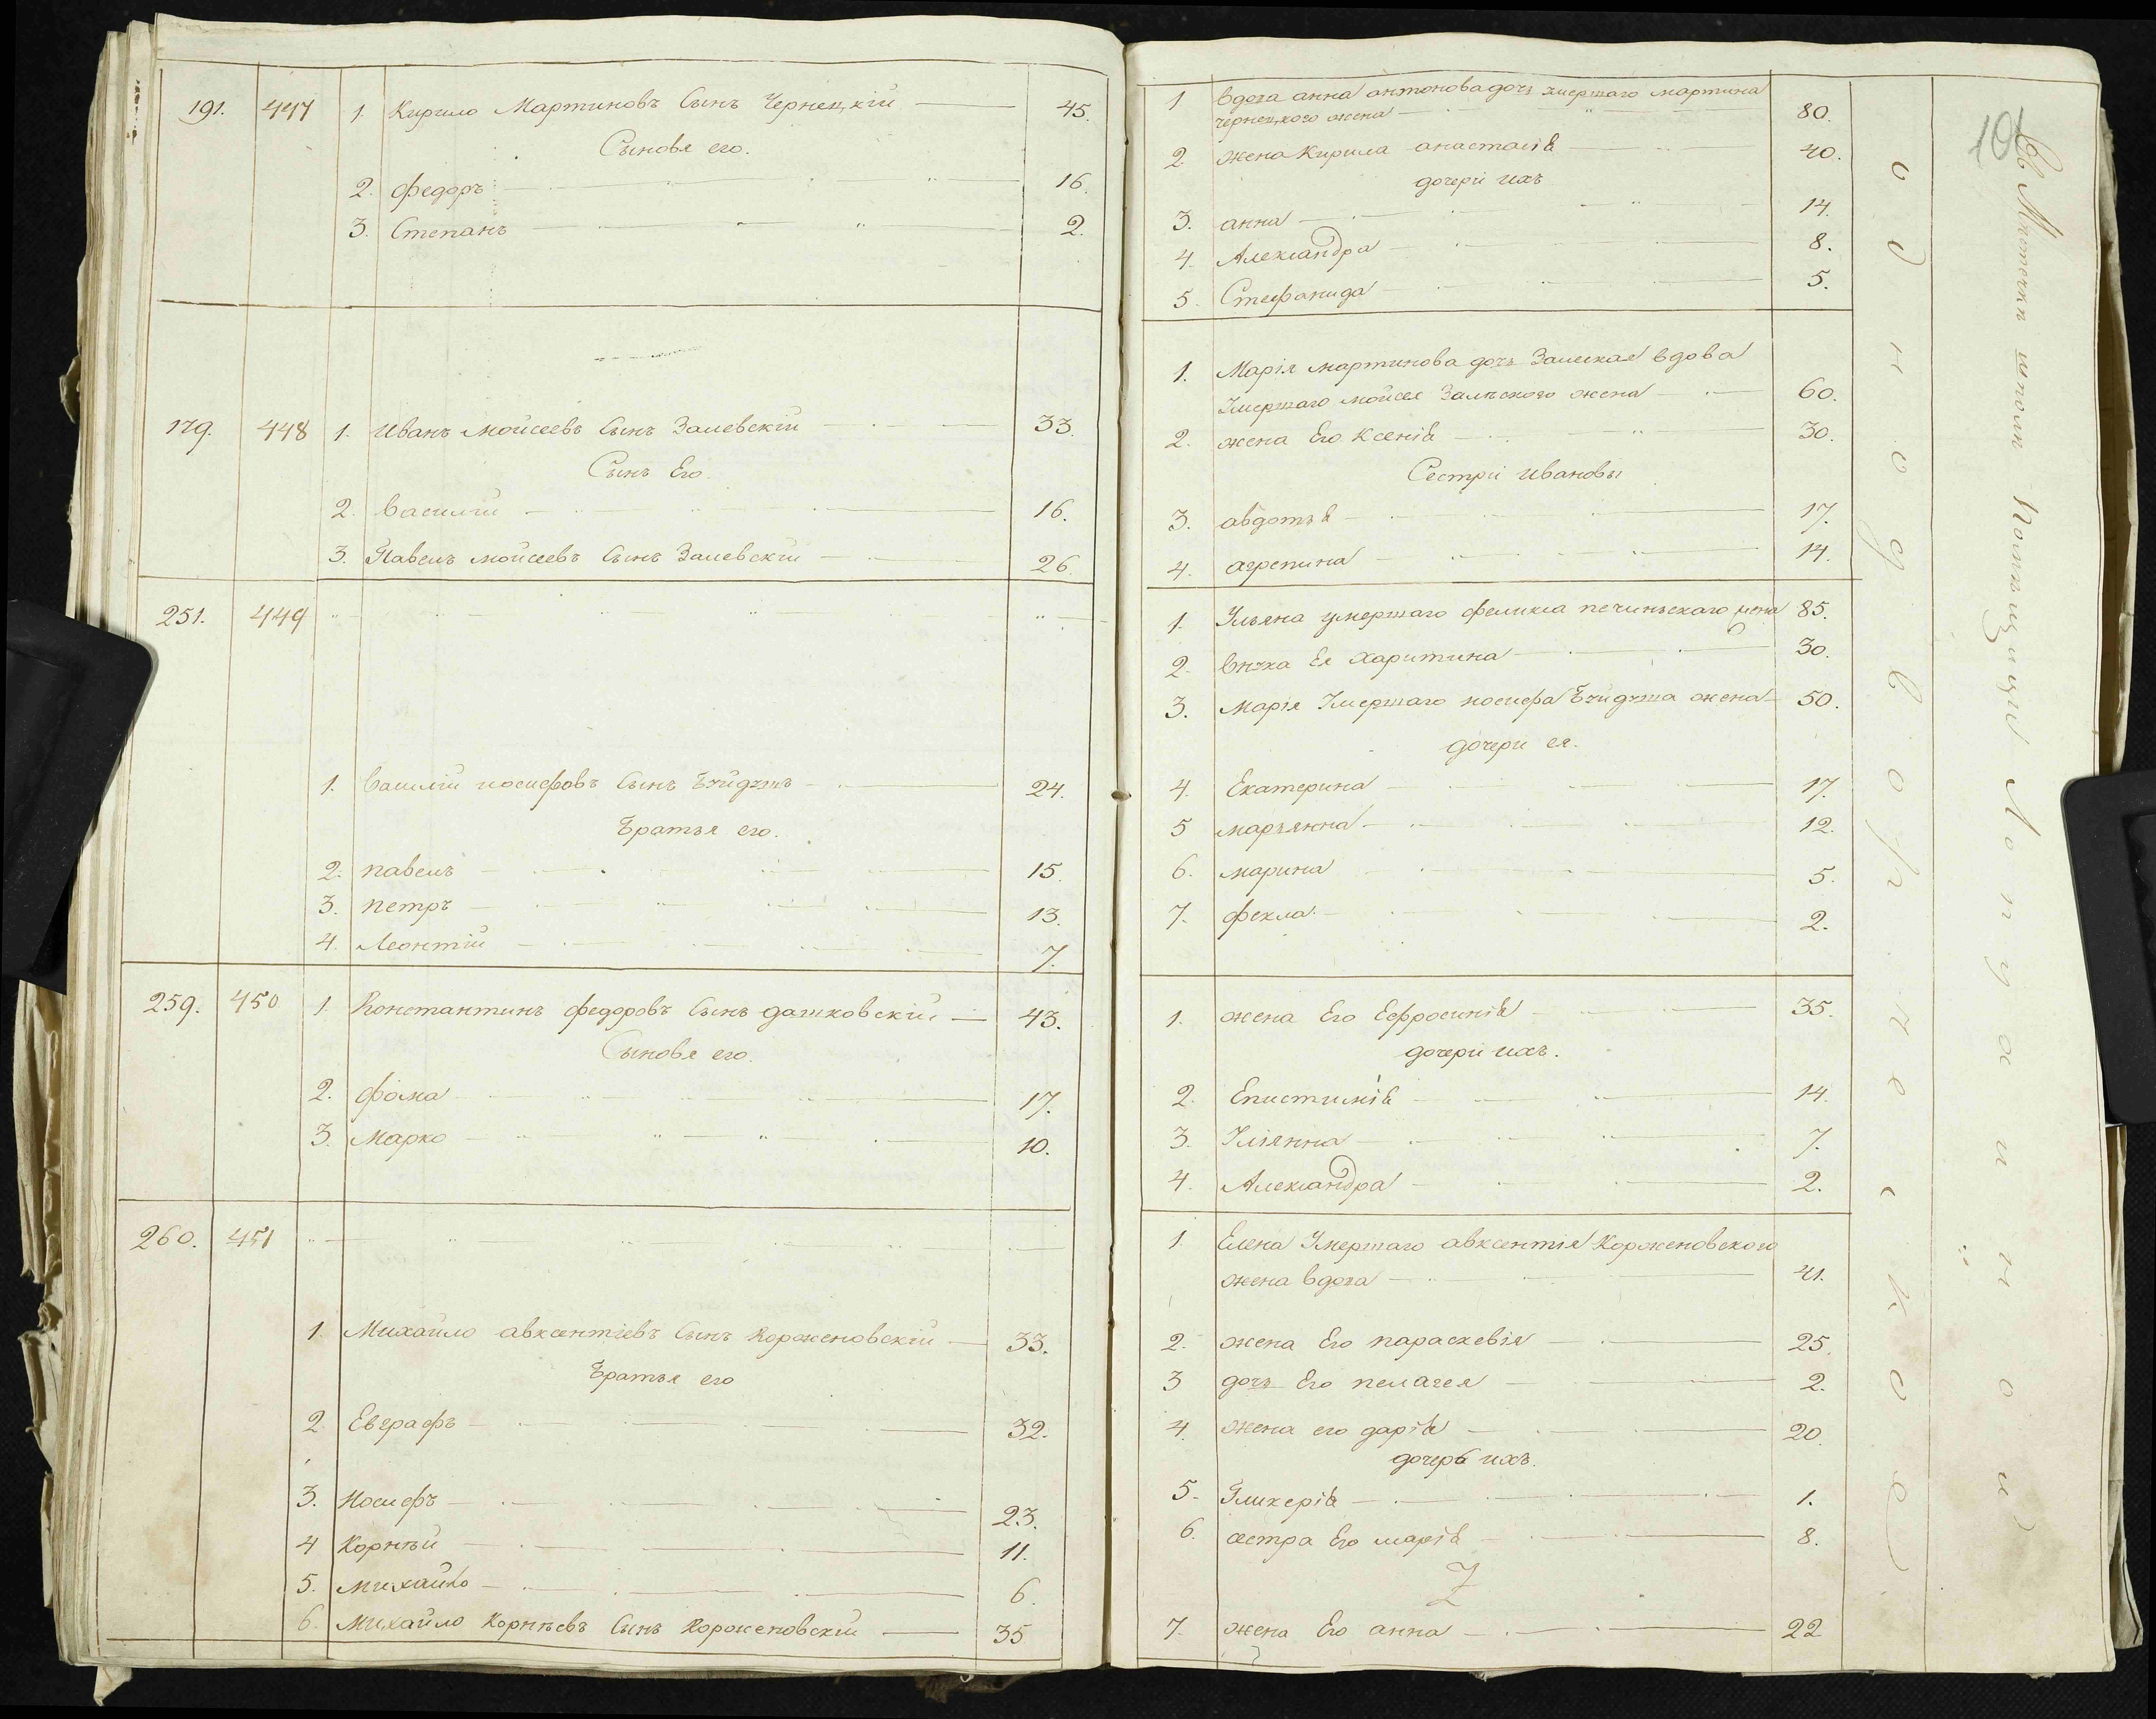 191. 447 1. Кирило Мартиновъ Сынъ Чернецкiй 45.
Сыновя его.
2. федоръ 16.
3. Степанъ 2.
179. 448 1. Иванъ Мойсеевъ Сынъ Залевскiй 33.
Сынъ Его.
2. Василiй 16.
3. Павелъ мойсеевъ Сынъ Залевскiй 26.
251. 449
1. Василiй иосифовъ Сынъ 24.
Братья его.
2. павелъ 15.
3. петръ 13.
4. Леонтiй 7.
259. 450 1. Константинъ федоровъ Сынъ дашковскiй 43.
Сыновя его.
2. фома 17.
3. Марко 10.
260. 451
1. Михайло авксентiевъ Сынъ Корженовскiй 33.
Братья его
2. Евграфъ 32.
3. Иосифъ 23.
4 Корнѣй 11.
5. Михайло 6.
6. Михайло Корнѣевъ Сынъ Корженовскiй 35
1 вдова анна антонова дочь умершаго мартина
чернецкого жена 80.
2. жена Кирила анастасiя 40.
дочери ихъ
3. анна 14.
4. Александра 8.
5. Стефанида 5.
1. Марiя мартинова дочь Залеская вдова
Умершаго мойсея Залѣского жена 60.
2. жена Его Ксенiя 30.
Сестри Ивановы
3. авдотья 17.
4. агрепина 14.
1. Ульяна умершаго феликса печинѣскаго жена 85.
2. внука Ея Харитина 30.
3. Марiя Умершаго иосифа жена 50.
дочери ея.
4. Екатерина 17.
5 марьянна 12.
6. марина 5.
7. фекла 2.
1. жена Его Ефросинiя 35.
дочери ихъ.
2. Епистимiя 14.
3. Улiянна 7.
4. Александра 2.
1 Елена Умершаго авксентiя Корженовского
жена вдова 41.
2. жена Его параскевiя 25.
3 дочь Его пелагея 2.
4. жена его дарiя 20.
дочерь ихъ.
5. Гликерiя 1.
6. сестра Его марiя 8.
7. жена Его анна 22
однодворческое
Въ Мѣстечкѣ шполѣ Помѣщицы Лопухиной